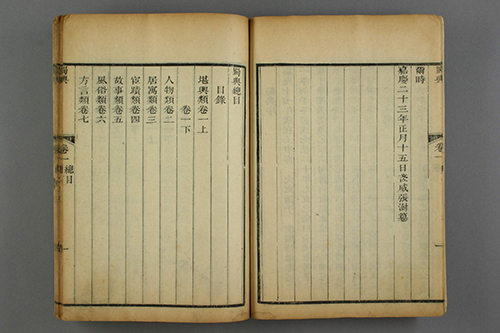 蜀典 卷一
時
嘉慶二十三年正月十五日武威張澍
蜀典總目
目錄
堪輿類卷一上
卷一下
人物類卷二
居寓類卷三
宦蹟類卷四
故事類卷五
風俗類卷六
方言類卷七
蜀典 卷一 總目 一